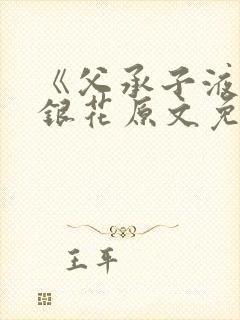 《父承子液
銀花原文免
王平